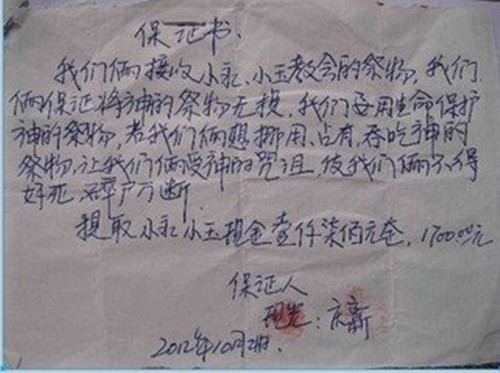 保证书.
我们俩接收小永、小玉教会的祭物，我们
俩保证将神的祭物无损，我们要用生命保护
神的祭物，若我们俩想挪用、占有、吞吃神的
祭物，让我们俩受神的咒诅，使我们俩不得
好死 碎尸万断
提取小永 小玉现金壹仟柒佰元全，1700.00元
保证人
：京新
2012年10月2